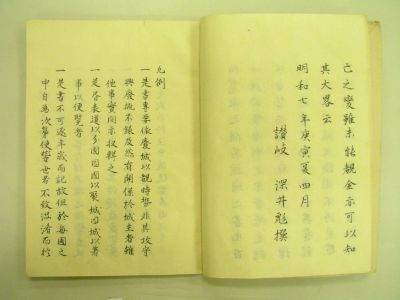 亡之變雖未能覩全亦可以知
其大畧云
明和七年庚寅夏四月
讃岐 深井彪撰
凡例
一是書專要依廢城以觀時勢非其攻守
興廢概不錄及然有關係於城主者雖
他事實間亦収輯之
一是書表道以分國因國以聚城因城以著
事以便覽者
一是書不可逐年歲而記故但於每國之
中自為次第使 世 不致溷淆而於